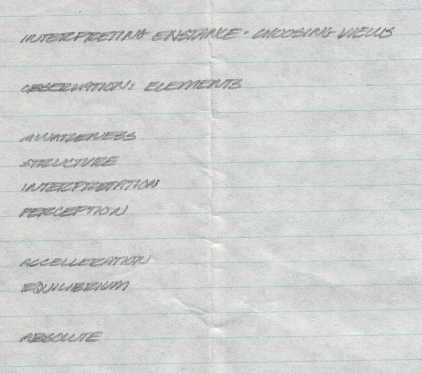 INTERPRETING EXISTANCE - CHOOSING VIEWS
OBSERVATION: ELEMENTS
AWARENESS
STRUCTURE
INTERPRETATION
PERCEPTION
ACCELLERATION
EQUILIBRIUM
ABSOLUTE